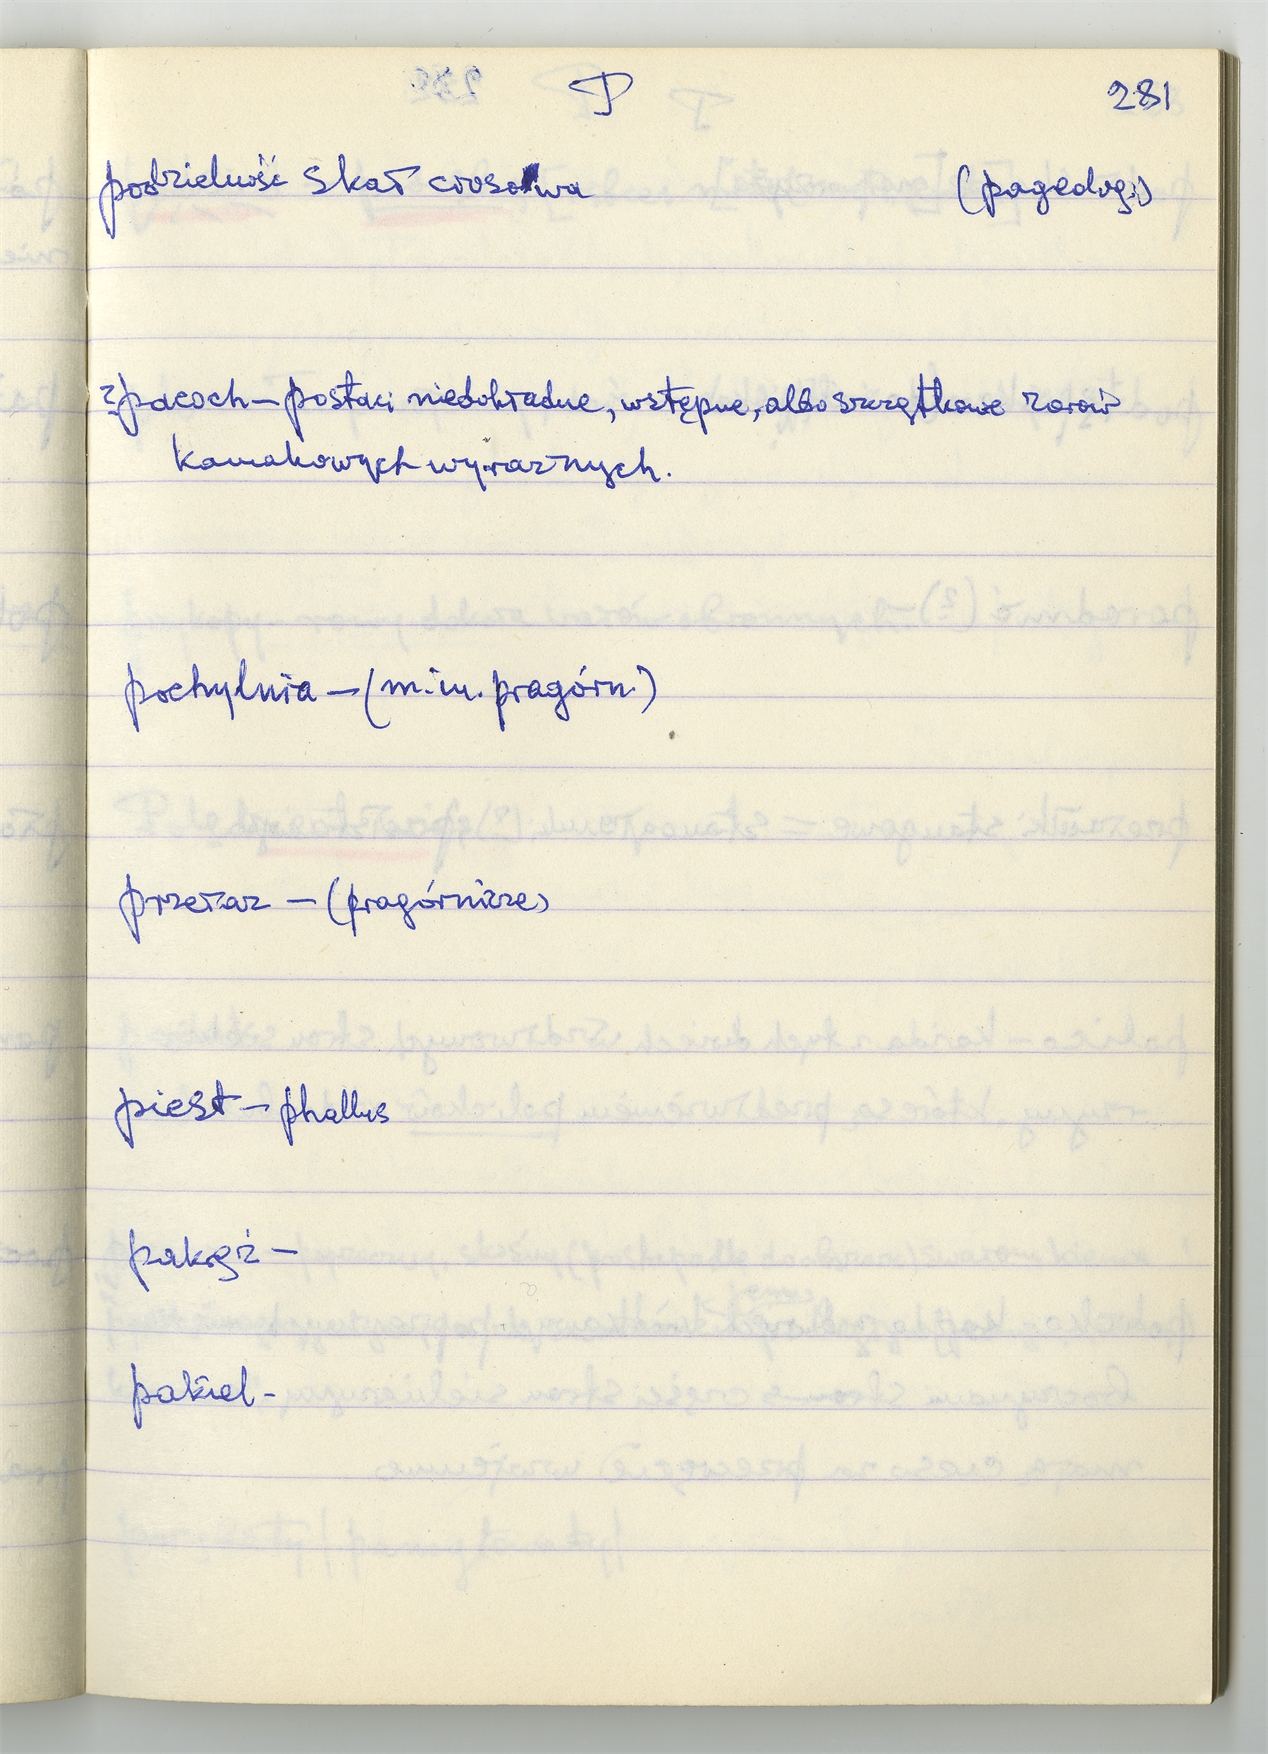 P 281
podzielność skał ciosowa (pagedog.)
?pacoch – postaci niedokładne, wstępne, albo szczątkowe
kamakowych wyraznych.
pochylnia – (m.in. pragórn.)
przełaz – (pragórnicze)
piest – phallus
pakąż –
pakiel -